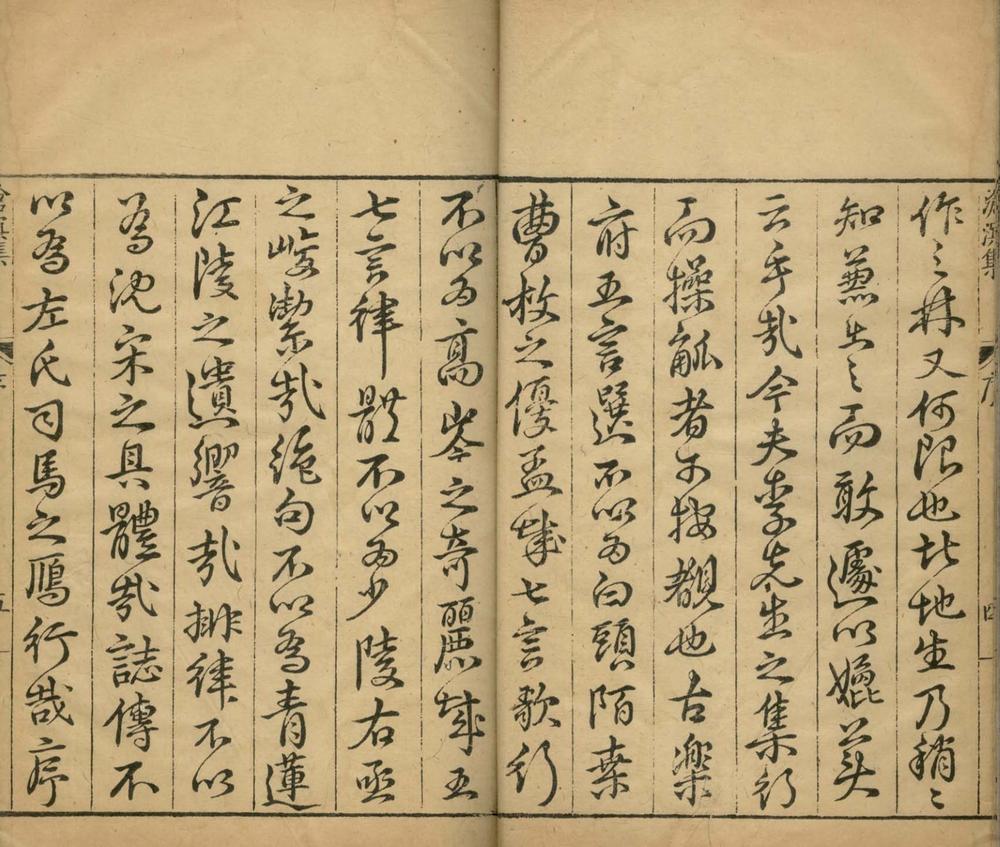 滄溟集
序
四
作之林又何限也北地生乃稍稍
知兼出之而敢遽以媲美
云乎哉今夫李先生之集行
而操觚者可按覩也古樂
府五言選不以爲白頭陌桑
曹枚之優孟哉七言歌行
不以爲高岑之奇麗哉五
七言律體不以爲少陵右丞
之峻潔哉絶句不以爲青蓮
江陵之遺響哉排律不以
爲沈宋之具體哉誌傳不
以爲左氏司馬之鴈行哉序
滄溟集
五